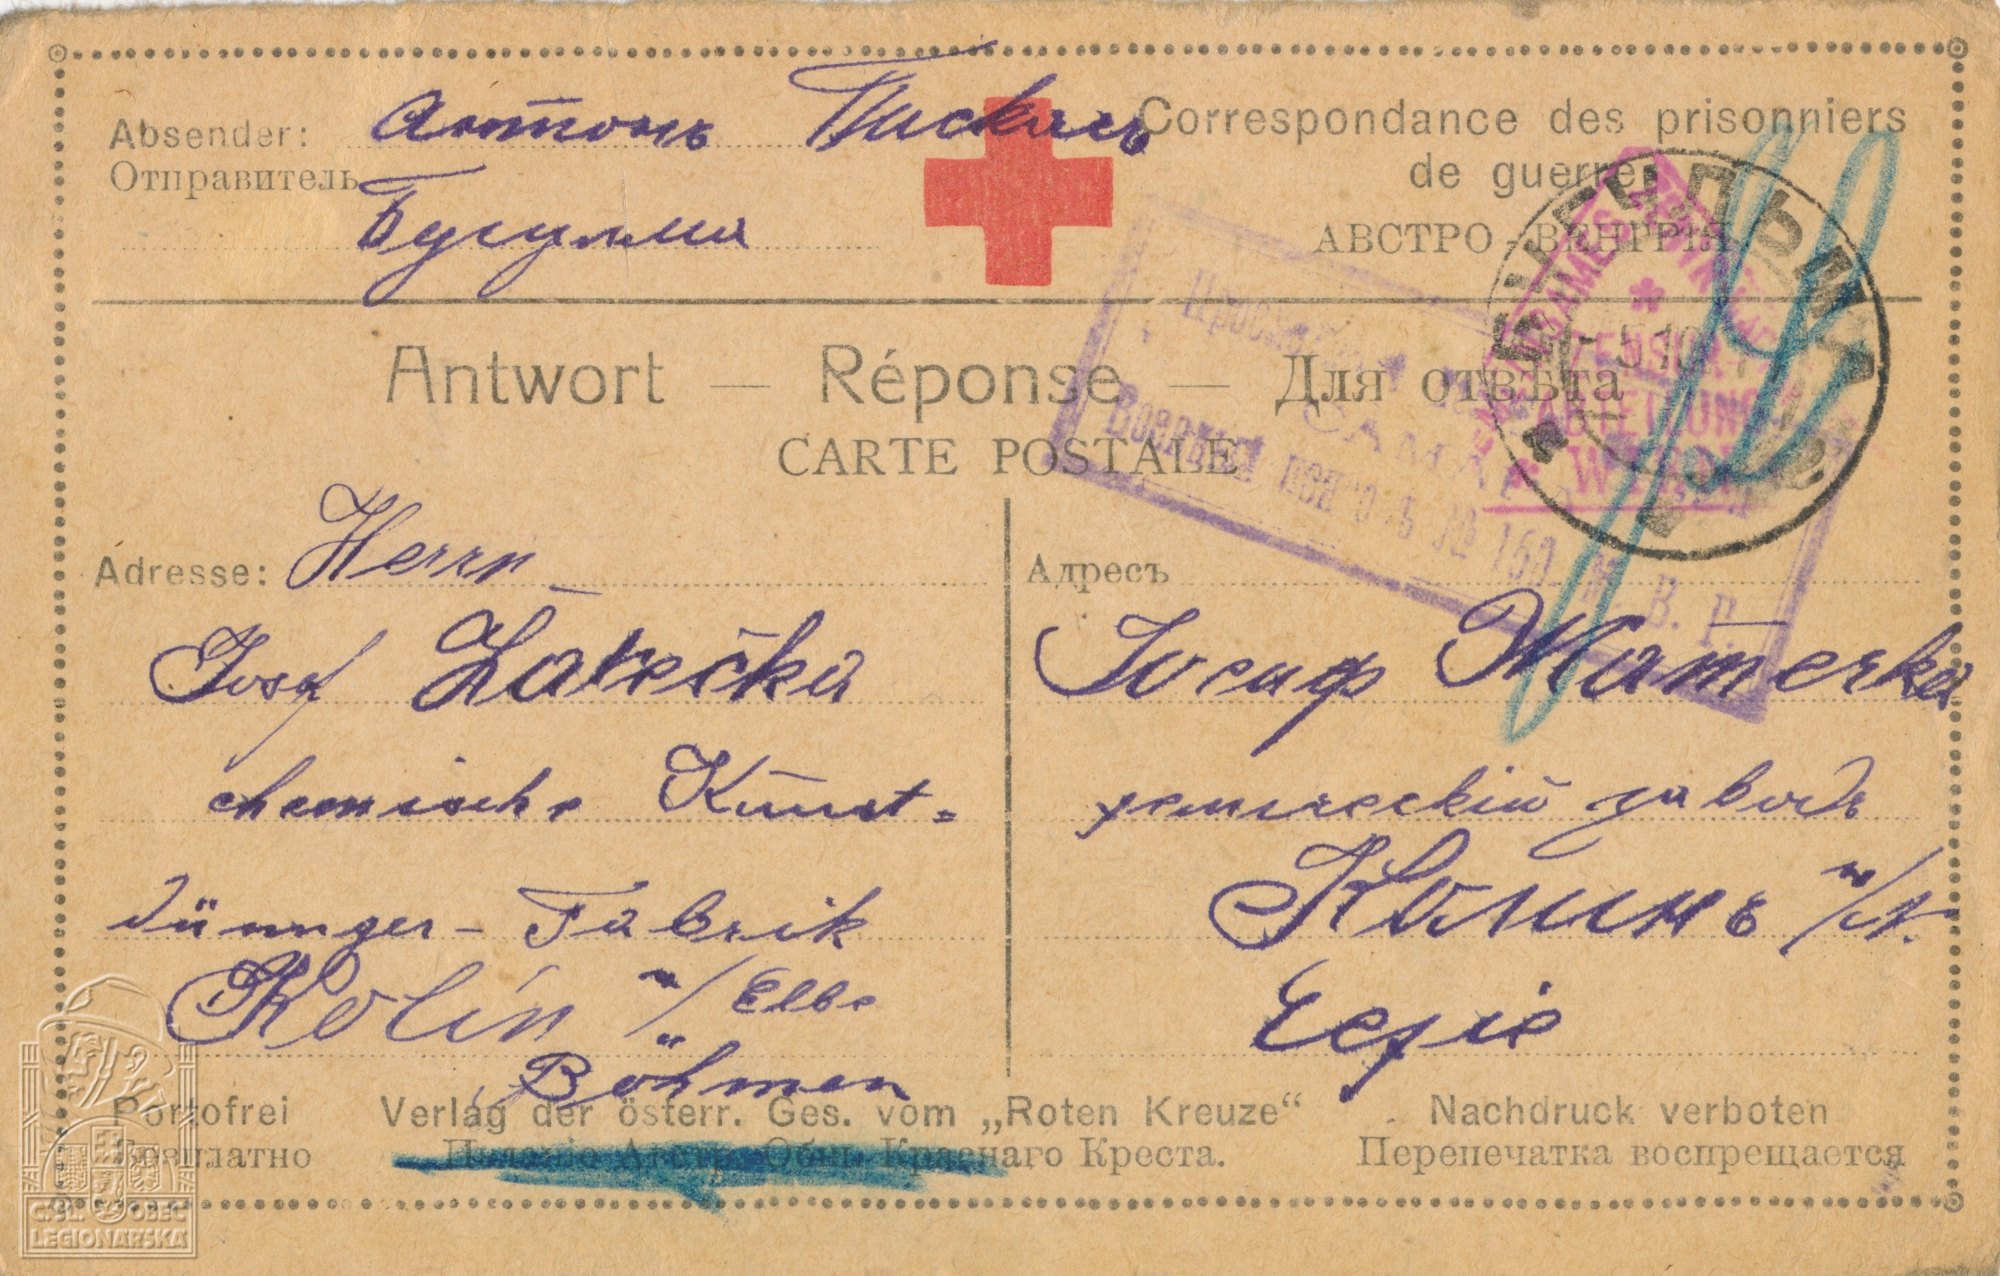 Absender: Антонъ
Отправитель
Бугульма
Correspondance des prisonniers
de guerre
АВСТРО-ВЕНГРІЯ
Antwort — Réponse — Для отвѣта
CARTE POSTALE
Adresse: Herrn
Josef Žatečka
chemische Kunst=
dünger-Fabrik
Kolín n/Elbe
Böhmen
Адресъ
Іосиф Жатечка
химическій заводъ
Колинъ н/Л.
БУГУЛЬМА
САМАРА
ZENSUR
ABTEILUNG
WIEN
Portofrei
Безплатно
Verlag der österr. Ges. vom „Roten Kreuze“
Изданіе Австр. Общ. Краснаго Креста.
Nachdruck verboten
Перепечатка воспрещается
Č.SL. OBEC
LEGIONÁŘSKÁ